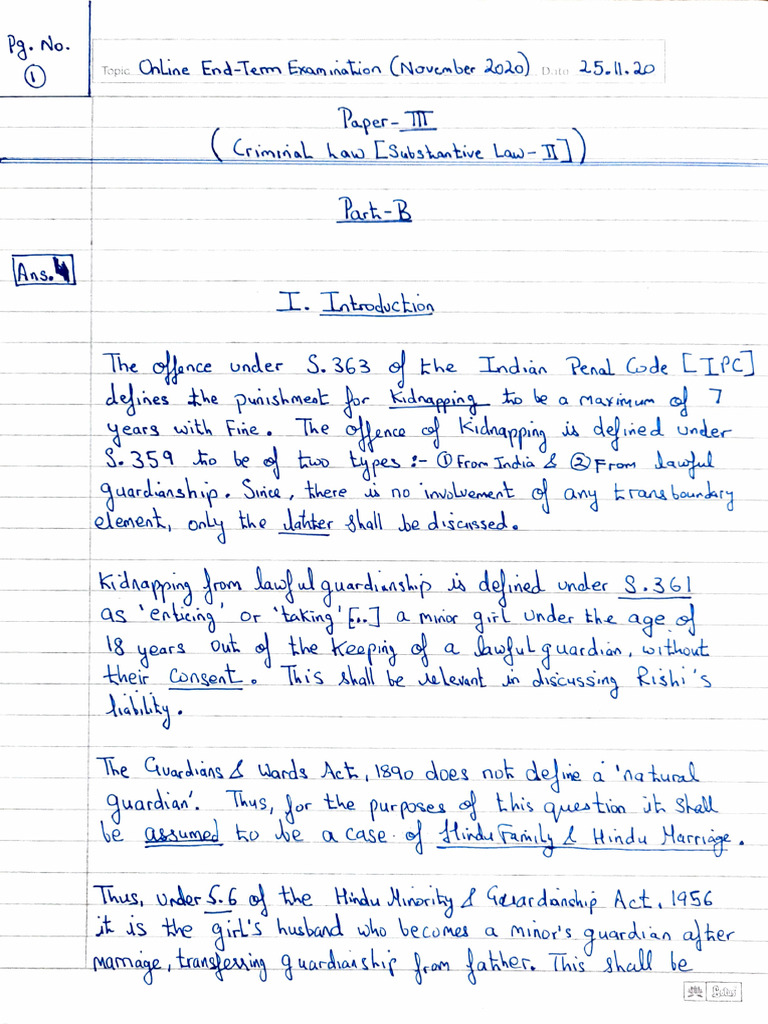 Pg. No.
1
Topic Online End-Term Examination (November 2020) Date 25.11.20
Paper-III
(Criminal Law [Substantive Law-II])
Part-B
Ans. 4
I. Introduction
The offence under S.363 of the Indian Penal Code [IPC]
defines the punishment for Kidnapping to be a maximum of 7
years with Fine. The offence of Kidnapping is defined under
S.359 to be of two types :- ① From India & ② From lawful
guardianship. Since, there is no involvement of any transboundary
element, only the latter shall be discussed.
Kidnapping from lawful guardianship is defined under S.361
as 'enticing' or 'taking' [..] a minor girl under the age of
18 years out of the Keeping of a lawful guardian, without
their consent. This shall be relevant in discussing Rishi's
liability.
The Guardians & Wards Act, 1890 does not define a 'natural
guardian'. Thus, for the purposes of this question it shall
be assumed to be a case of Hindu Family & Hindu Marriage.
Thus, under S.6 of the Hindu Minority & Guardianship Act, 1956
it is the girl's husband who becomes a minor's guardian after
marriage, transferring guardianship from father. This shall be